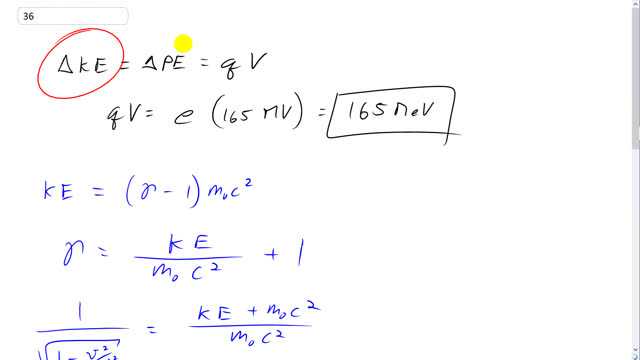 36
ΔKE = ΔPE = qV
qV = e (165 MV) = 165 MeV
KE = (γ - 1) m₀c²
γ = KE / m₀c² + 1
1 / √(1 - v²/c²) = (KE + m₀c²) / m₀c²